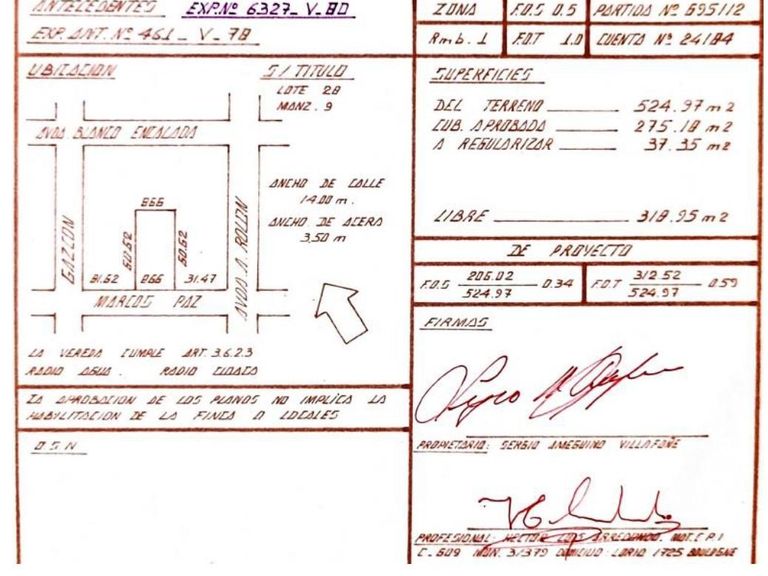 ANTECEDENTES EXP.Nº 6327_ V_ 80
EXP. ANT. Nº 461_ V_ 78
ZONA F.O.S 0.5 PARTIDA Nº 695112
Rmb. 1 F.O.T 1.0 CUENTA Nº 24184
UBICACION
S/ TITULO
LOTE 28
MANZ. 9
AVDA BLANCO ENCALADA
GAZCON
8.66
60.62
60.62
AVDA A. ROLON
81.62 8.66 31.47
MARCOS PAZ
ANCHO DE CALLE
14.00 m.
ANCHO DE ACERA
3.50 m
LA VEREDA CUMPLE ART. 3.6.2.3
RADIO AGUA. RADIO CLOACA
LA APROBACION DE LOS PLANOS NO IMPLICA LA
HABILITACION DE LA FINCA O LOCALES
O S N
SUPERFICIES
DEL TERRENO 524.97 m2
CUB. APROBADA 275.18 m2
A REGULARIZAR 37.35 m2
LIBRE 318.95 m2
DE PROYECTO
F.O.S 206.02 / 524.97 0.34 F.O.T 312.52 / 524.97 0.59
FIRMAS
PROPIETARIO: SERGIO AMEGUINO VILLAFAÑE
PROFESIONAL: HECTOR LUIS ARREDONDO. MAT. C P I
C. 609 MUN. 31379 DOMICILIO LORIO 1725 BOULOGNE